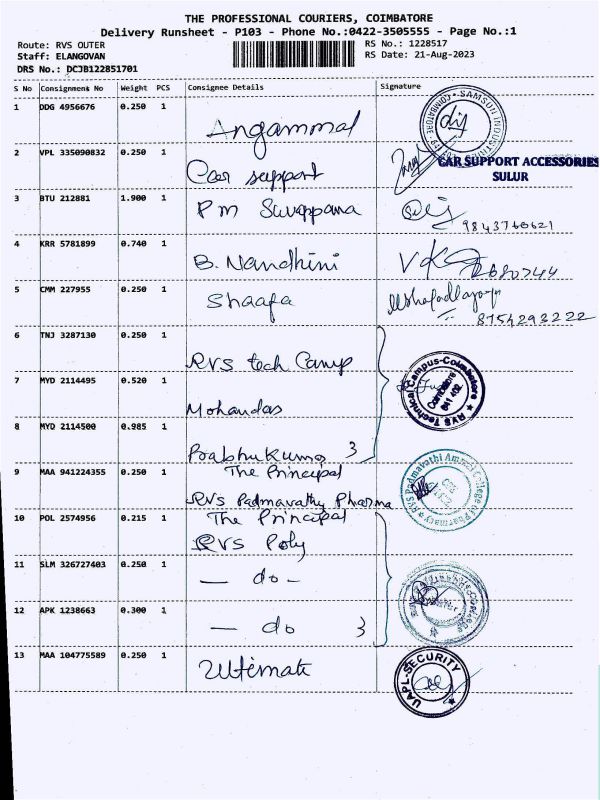 THE PROFESSIONAL COURIERS, COIMBATORE
Delivery Runsheet - P103 - Phone No.:0422-3505555 - Page No.:1
Route: RVS OUTER RS No.: 1228517
Staff: ELANGOVAN RS Date: 21-Aug-2023
DRS No.: DCJB122851701
S No Consignment No Weight PCS Consignee Details Signature
1 DDG 4956676 0.250 1
Angammal
2 VPL 335090832 0.250 1
Car support CAR SUPPORT ACCESSORIES
SULUR
3 BTU 212881 1.900 1 P m
9843760621
4 KRR 5781899 0.740 1
B. Nandhini
5 CMM 227955 0.250 1
Shaafa
8754293222
6 TNJ 3287130 0.250 1
RVS tech Camp
RVS Technical Campus-Coimbatore
Coimbatore
641 402
7 MYD 2114495 0.520 1
Mohandas
8 MYD 2114500 0.985 1
Prabhukumar 3
9 MAA 941224355 0.250 1 The Principal
RVS Padmavathy Pharma
RVS Padmavathi Ammal College of Pharmacy
10 POL 2574956 0.215 1 The Principal
RVS Poly
11 SLM 326727403 0.250 1
— do -
12 APK 1238663 0.300 1
— do 3
13 MAA 104775589 0.250 1
Ultimate
UAPL-SECURITY